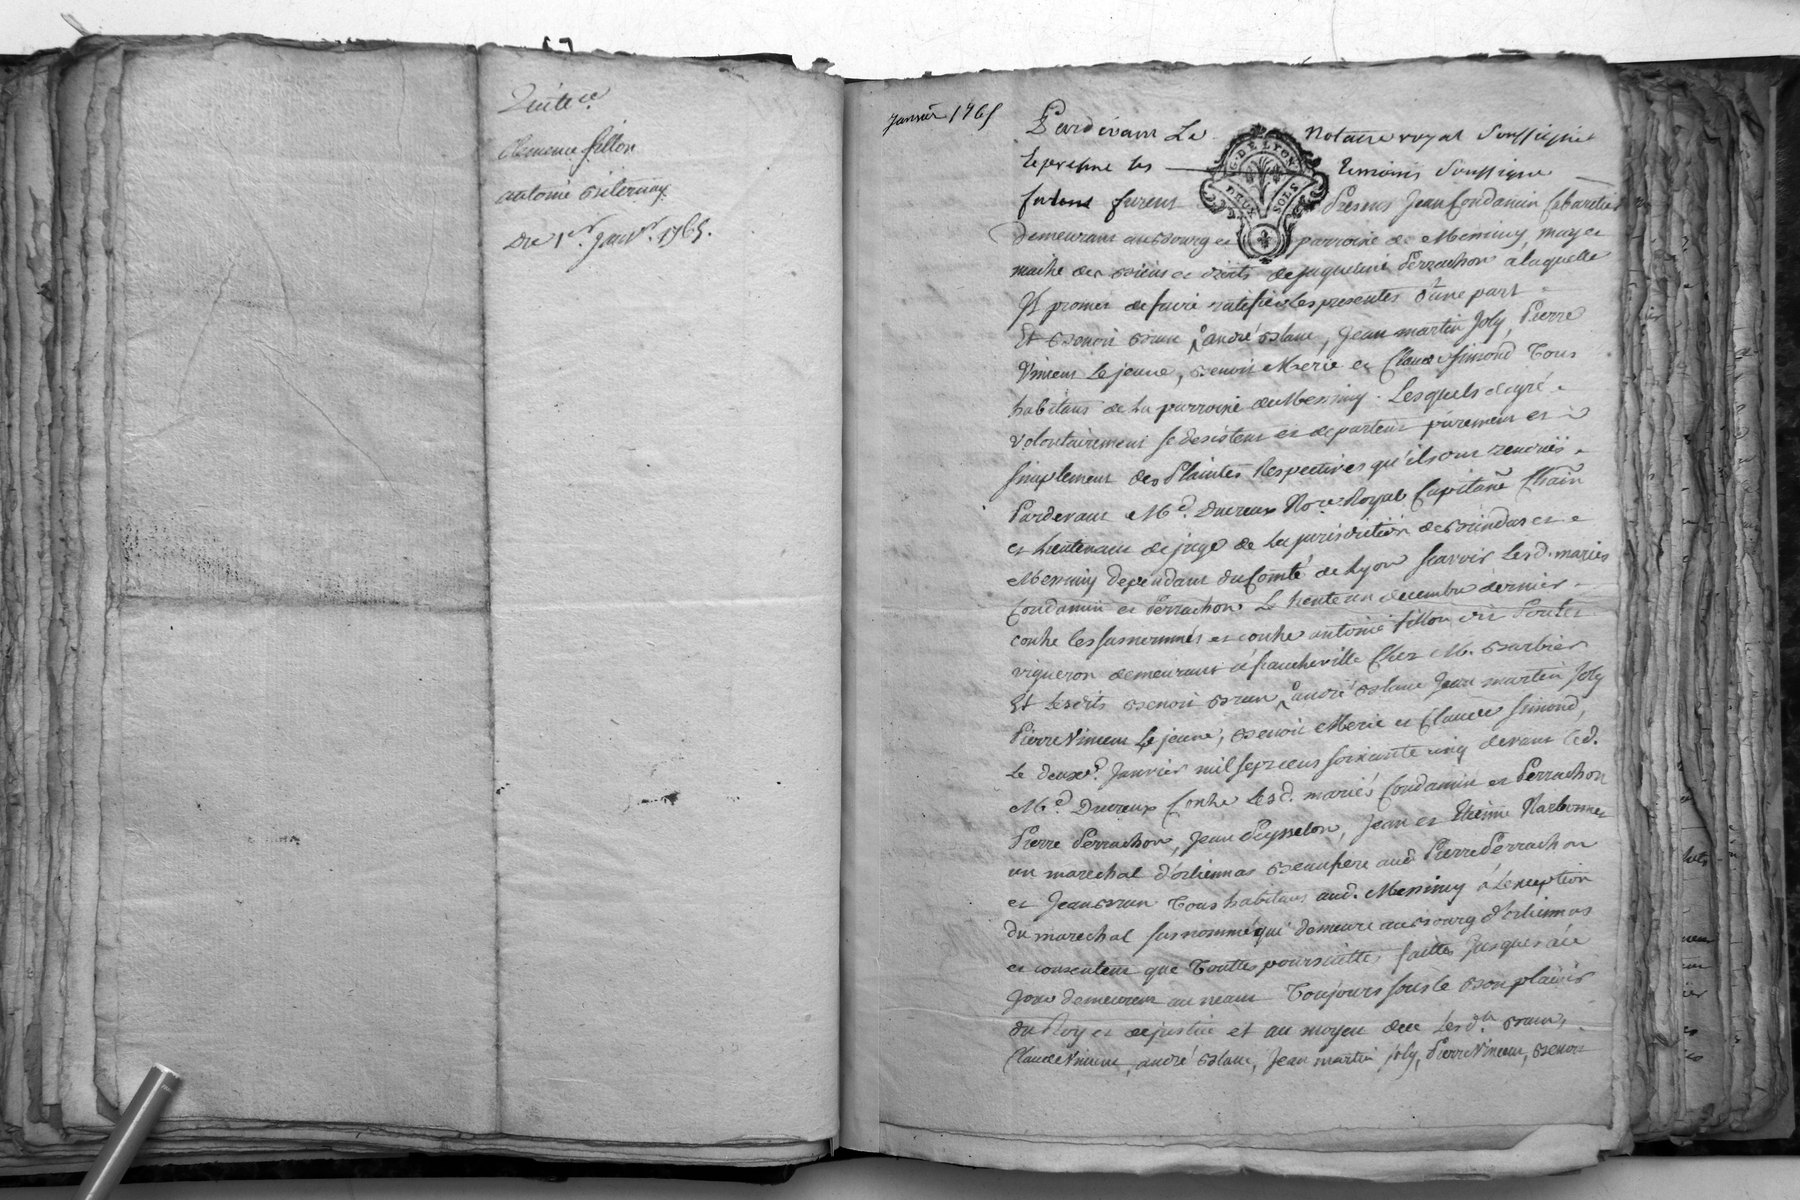 Quitce
Clemence fillon
antoine
Du 1er Janvr. 1765.
Janvier 1765
Pardevant Le Notaire royal Soussigné
G. DE LYON
DEUX SOLS
presens les temoins Soussignes
furent Presens Jean Condamin Cabaretier
Demeurant au Bourg et parroisse de Messimy, may et
maitre des biens et droits de Jaqueline Perrachon a laquelle
Il promet de faire ratifier Les presentes D'une part
Et Benoit Brun, andré Blanc, Jean martin Joly, Pierre
Vincent Le jeune, Benoit Merie et Claude Simond Tous
habitans de La parroisse de Messimy. Lesquels de gré
volontairement se desistent et departent purement et
simplement des Plaintes Respectives qu'ils ont rendües
Pardevant Me. Ducreux Nore. Royal Capitaine Chain
et Lieutenant de juge de La jurisdiction de Brindas et
Messimy dependant du Comté de Lyon scavoir Lesd. mariés
Condamin et Perrachon Le trente un decembre dernier
contre les susnommés et contre antoine fillon dit
vigneron demeurant a francheville Chez M. Barbier
Et Lesdits Benoit Brun, andré Blanc Jean martin Joly
Pierre Vincent Le jeune, Benoit Merie et Claude Simond,
Le deuxe. Janvier mil sept cens soixante cinq devant led.
Me. Ducreux Contre Lesd. mariés Condamin et Perrachon
Pierre Perrachon, Jean Peysselon, Jean et Etienne Narbonnet
un marechal d'orliennas Beaupere aud. Pierre Perrachon
et Jean Brun Tous habitans aud. Messimy à L'exception
du marechal susnommé qui demeure au Bourg d'orliennas
et consentent que Touttes poursuittes faittes Jusques à ce
Jour demeurent au neant Toujours sous le Bon plaisir
du Roy et de justice et au moyen de ce Lesd. Brun,
Claude Vincent, andré Blanc, Jean martin Joly, Pierre Vincent, Benoit